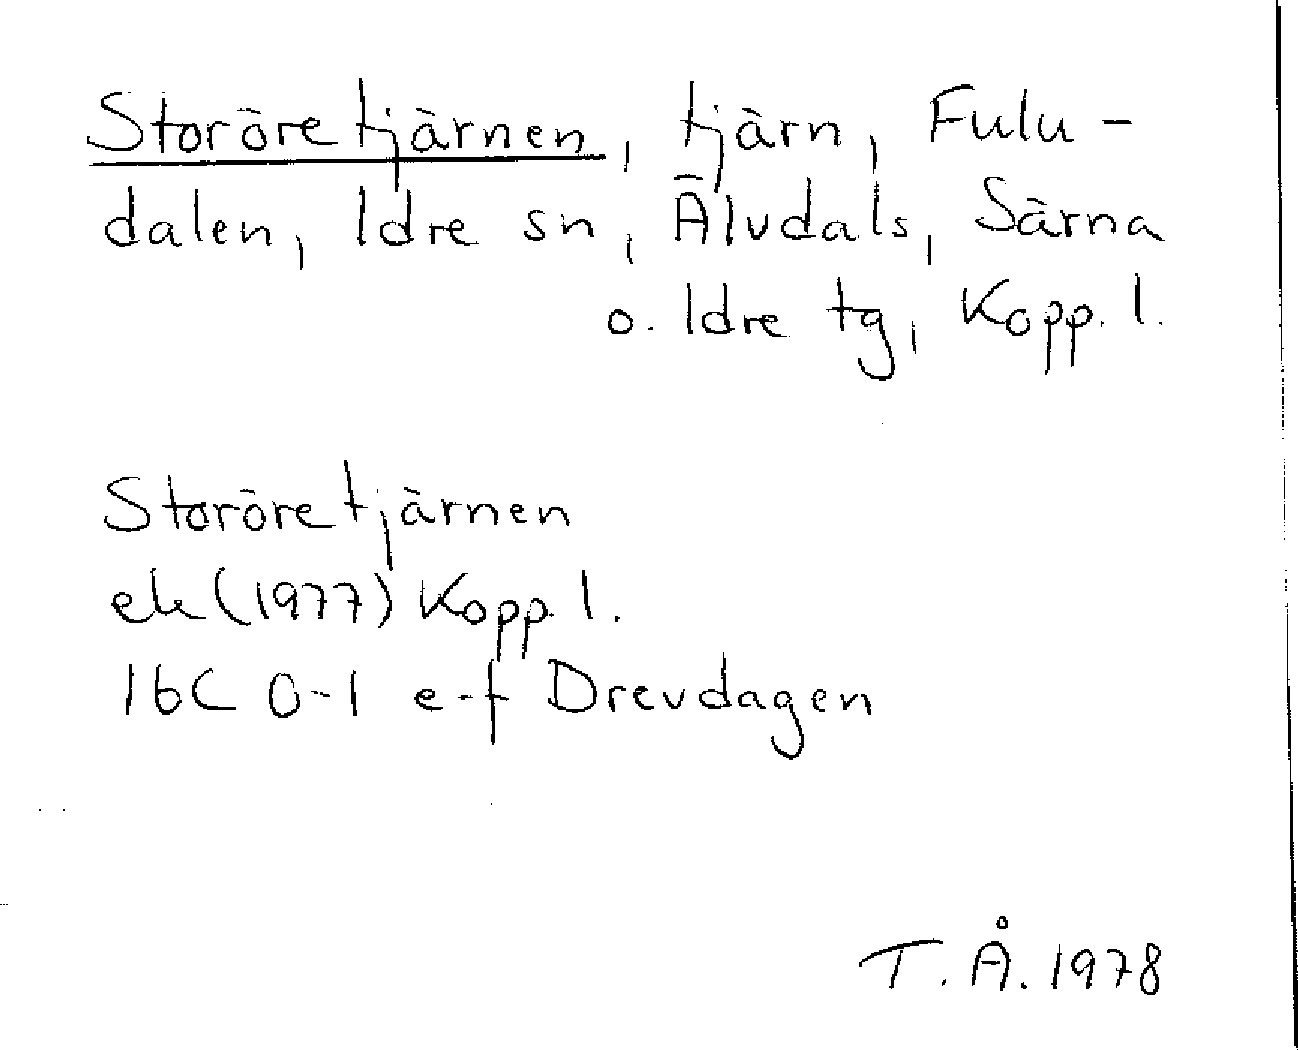 Storöretjärnen, tjärn, Fulu-
dalen, Idre sn, Älvdals, Särna
o. Idre tg, Kopp. l.
Storöretjärnen
ek (1977) Kopp. l.
16C 0-1 e-f Drevdagen
T. Å. 1978